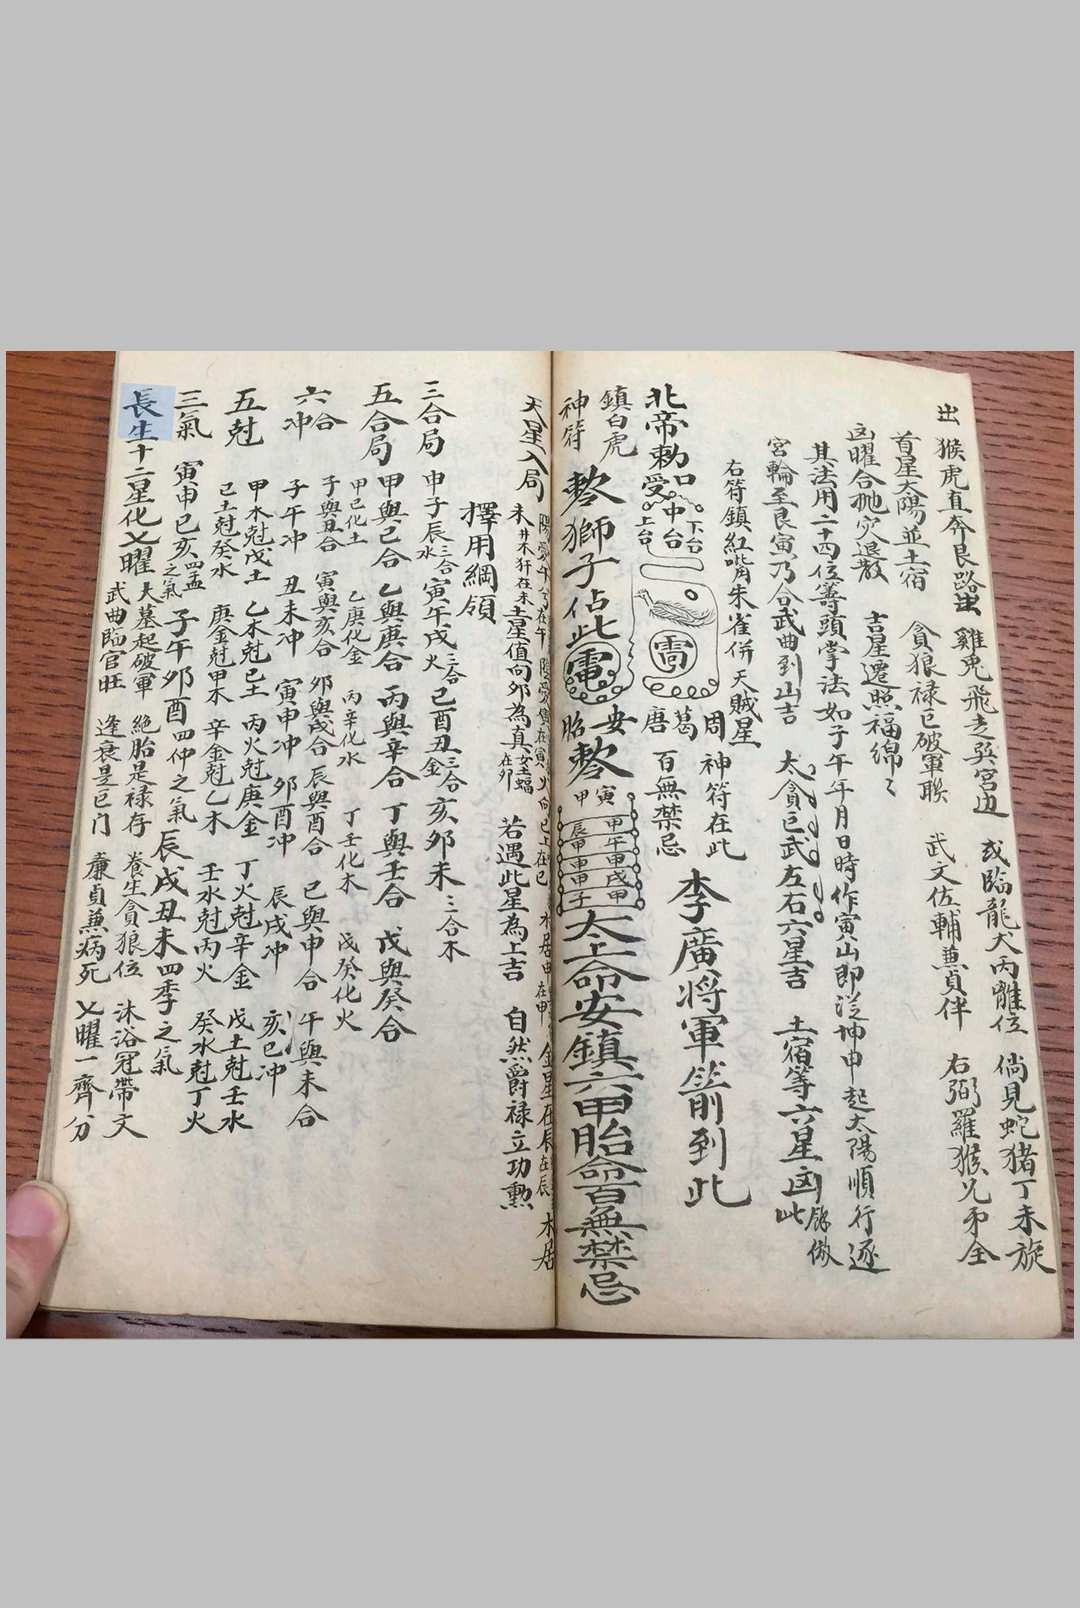 出 猴虎直奔艮路出 雞兎飛走巽宮边 或臨龍犬丙離位 倘見蛇猪丁未旋
首星太陽並土宿 貪狼禄巳破軍聯 武文佐輔兼貞伴 右弼羅猴兄弟全
凶曜合艳穴退散 吉星遷照福綿々
其法用二十四位等頭掌法如子午年月日時作寅山即従坤申起太陽順行逐
宮輪至艮寅乃合武曲到山吉 太貪巨武左右六星吉 土宿等六星凶 餘倣此
右符鎮紅嘴朱雀併天賊星
北帝勅口受 上台 中台 下台
唐 葛 周
神符在此 百無禁忌
李廣将軍箭到此
鎮白虎神符
獅子佔此
安胎
甲寅
甲午 甲辰
甲戌 甲申
甲子
太上命安鎮六甲胎命百無禁忌
天星入局
金星在辰在辰 木居
未 井木犴在未 土星值向夘為真 女土蝠在夘 若遇此星為上吉 自然爵禄立功勳
擇用綱領
三合局 申子辰三合水 寅午戌三合火 巳酉丑三合金 亥夘未三合木
五合局 甲與己合 乙與庚合 丙與辛合 丁與壬合 戊與癸合
甲己化土 乙庚化金 丙辛化水 丁壬化木 戊癸化火
六合 子與丑合 寅與亥合 夘與戌合 辰與酉合 巳與申合 午與未合
六冲 子午冲 丑未冲 寅申冲 夘酉冲 辰戌冲 亥巳冲
五尅 甲木尅戊土 乙木尅己土 丙火尅庚金 丁火尅辛金 戊土尅壬水
己土尅癸水 庚金尅甲木 辛金尅乙木 壬水尅丙火 癸水尅丁火
三氣 寅申巳亥四孟之氣 子午夘酉四仲之氣 辰戌丑未四季之氣
長生十二星化乂曜 大墓起破軍 絶胎是禄存 養生貪狼位 沐浴冠帶文
武曲臨官旺 逢衰是巨门 廉貞兼病死 乂曜一齊分